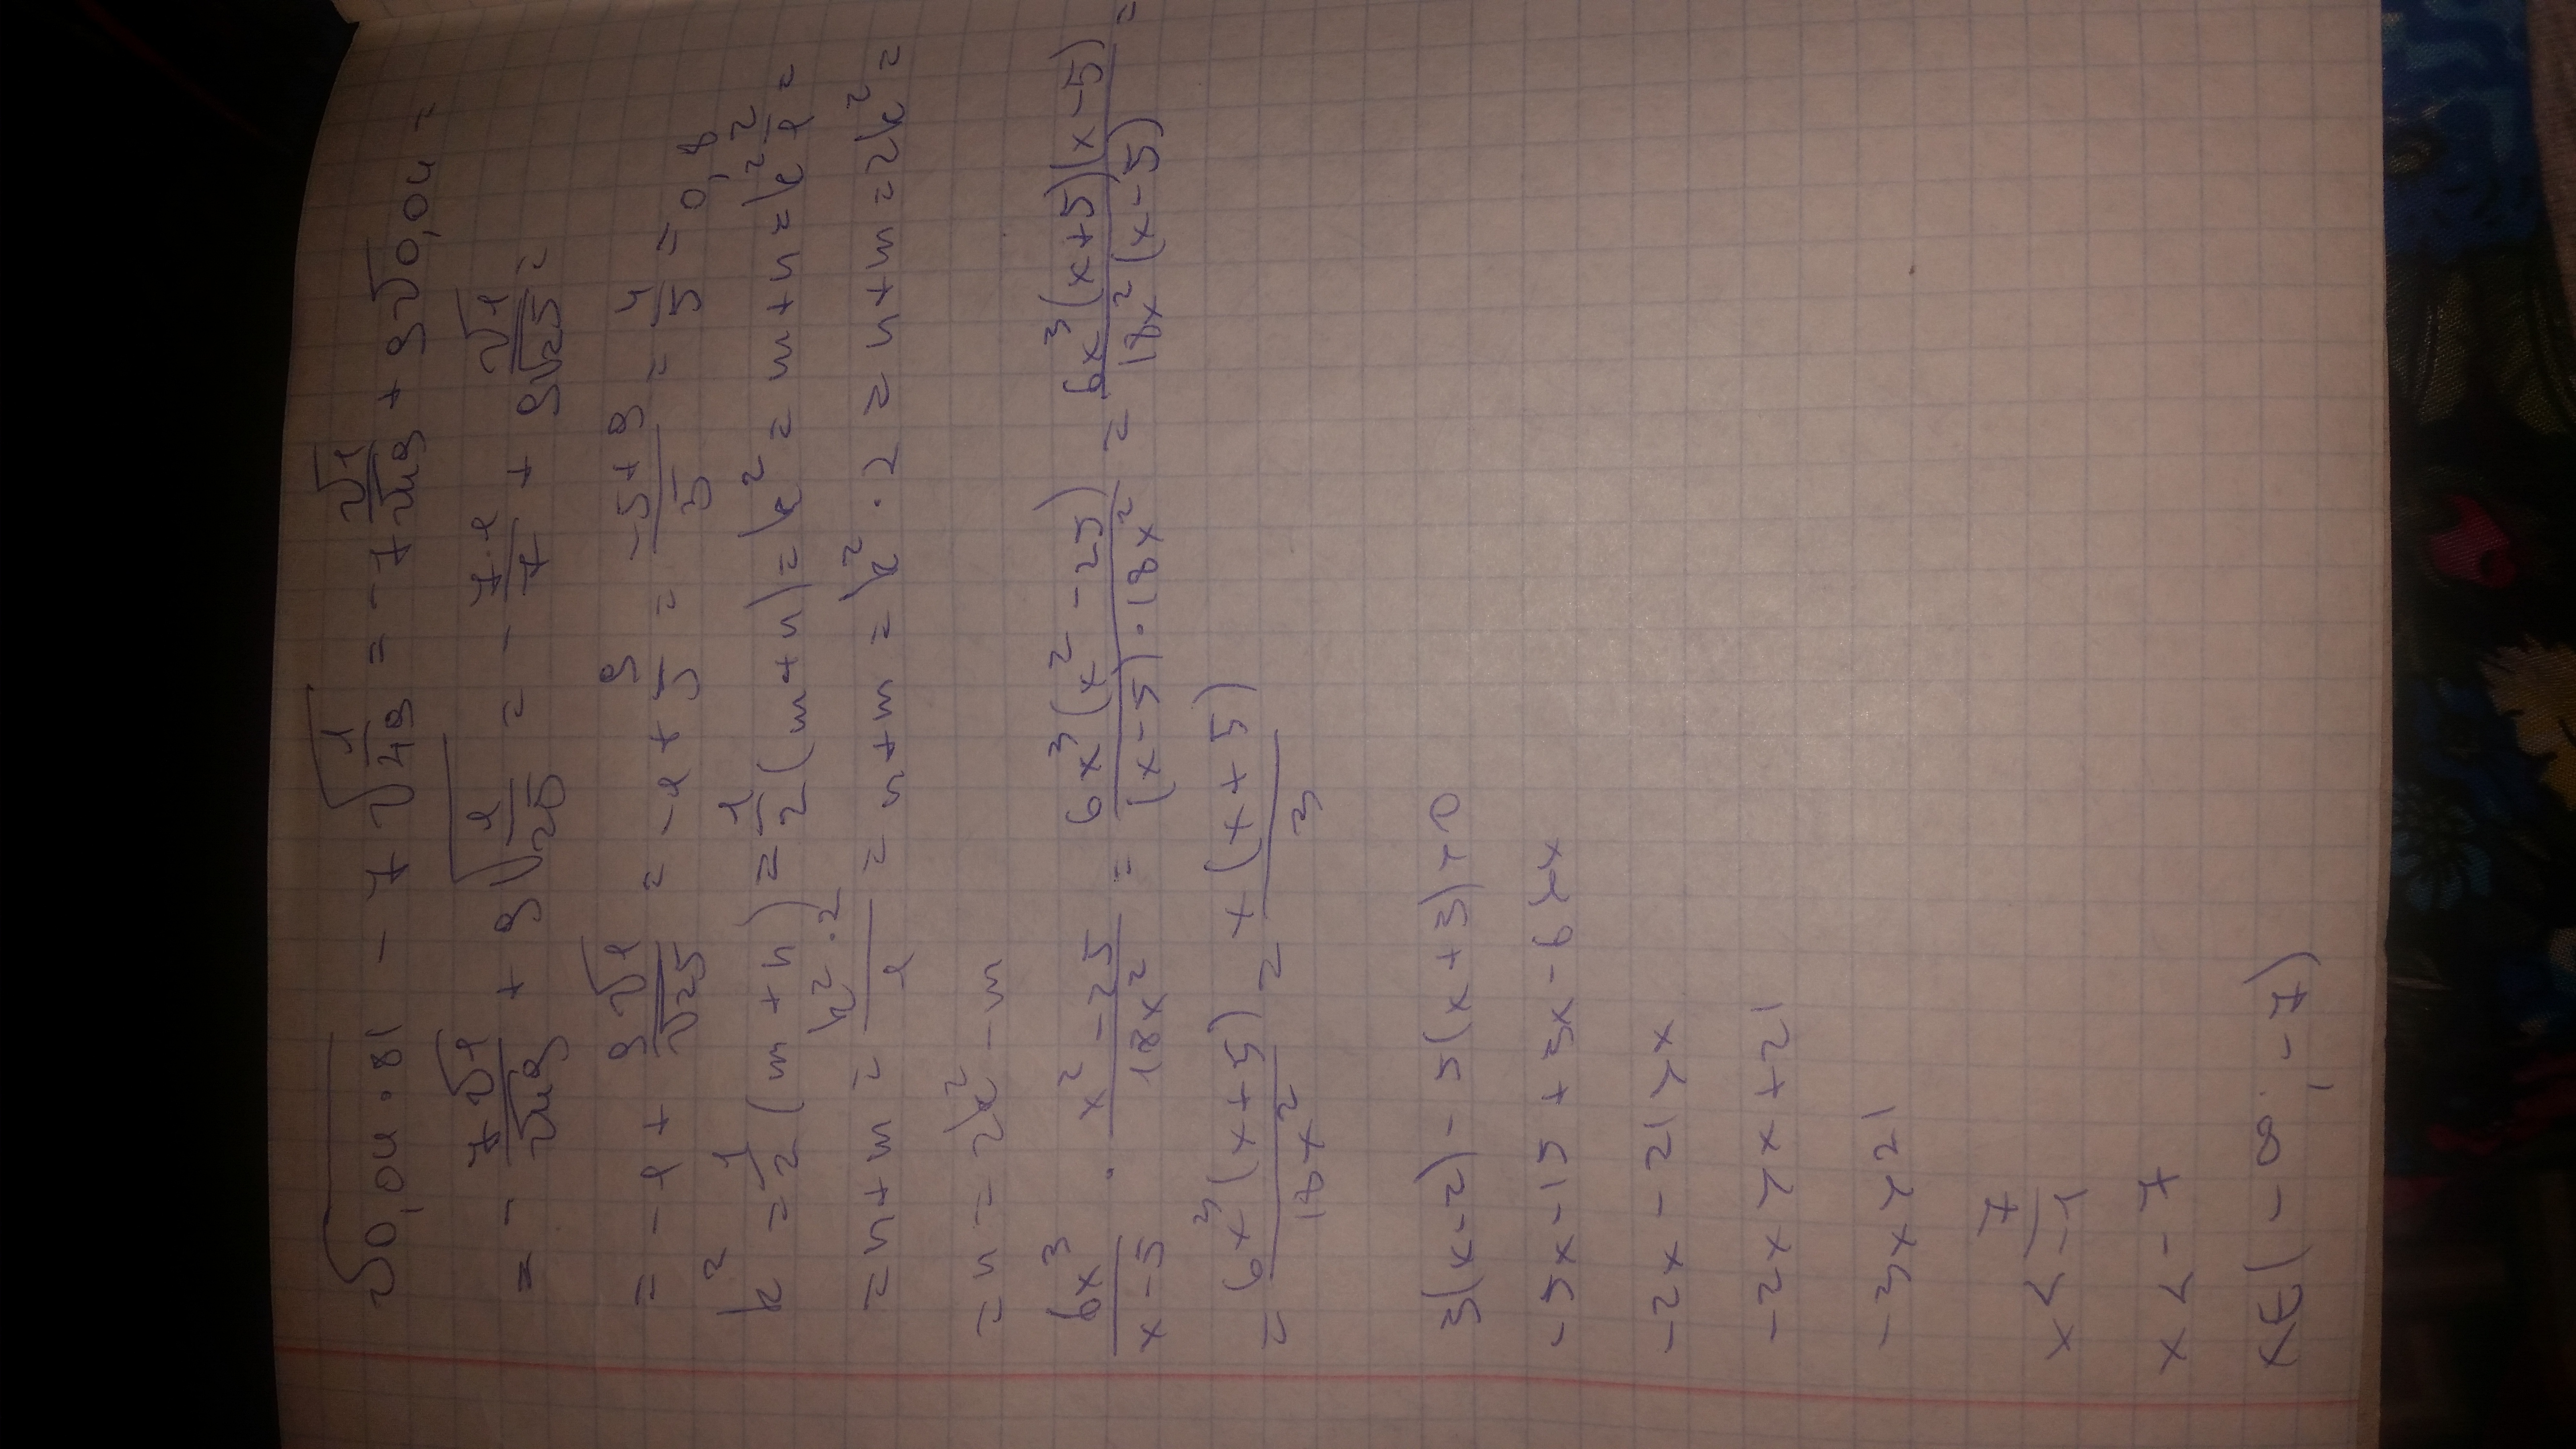 √0,04·81 − 7√(1/49) = −7 √1/√49 + 9√0,04 =
= − 7√1/√49 + 9√(1/25) = − 7·1/7 + 9 √1/√25 =
= −1 + 9√1/√25 = −1 + 9/5 = (−5+9)/5 = 4/5 = 0,8
k² = 1/2 (m+n) = 1/2 (m+n) = k² = m+n = k² 2/1 =
= n+m = k²·2/1 = n+m = k²·2 = n+m = 2k² =
= n = 2k² − m
6x³/(x−5) · (x²−25)/18x² = 6x³(x²−25)/((x−5)·18x²) = 6x³(x+5)(x−5)/18x²(x−5) =
= 6x³(x+5)/18x² = x(x+5)/3
3(x−2) − 5(x+3) > 0
−5x −15 + 3x − 6 > x
−2x − 21 > x
−2x > x + 21
−3x > 21
x < 7/−1
x < −7
x∈(−∞; −7)